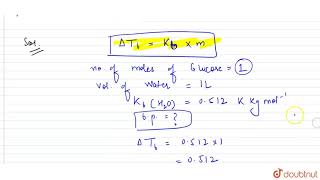 Sol.
ΔT_b = K_b × m
no of moles of Glucose = 1
vol of water = 1L
K_b (H₂O) = 0.512 K kg mol⁻¹
b.p. = ?
ΔT_b = 0.512 × 1
= 0.512
doubtnut